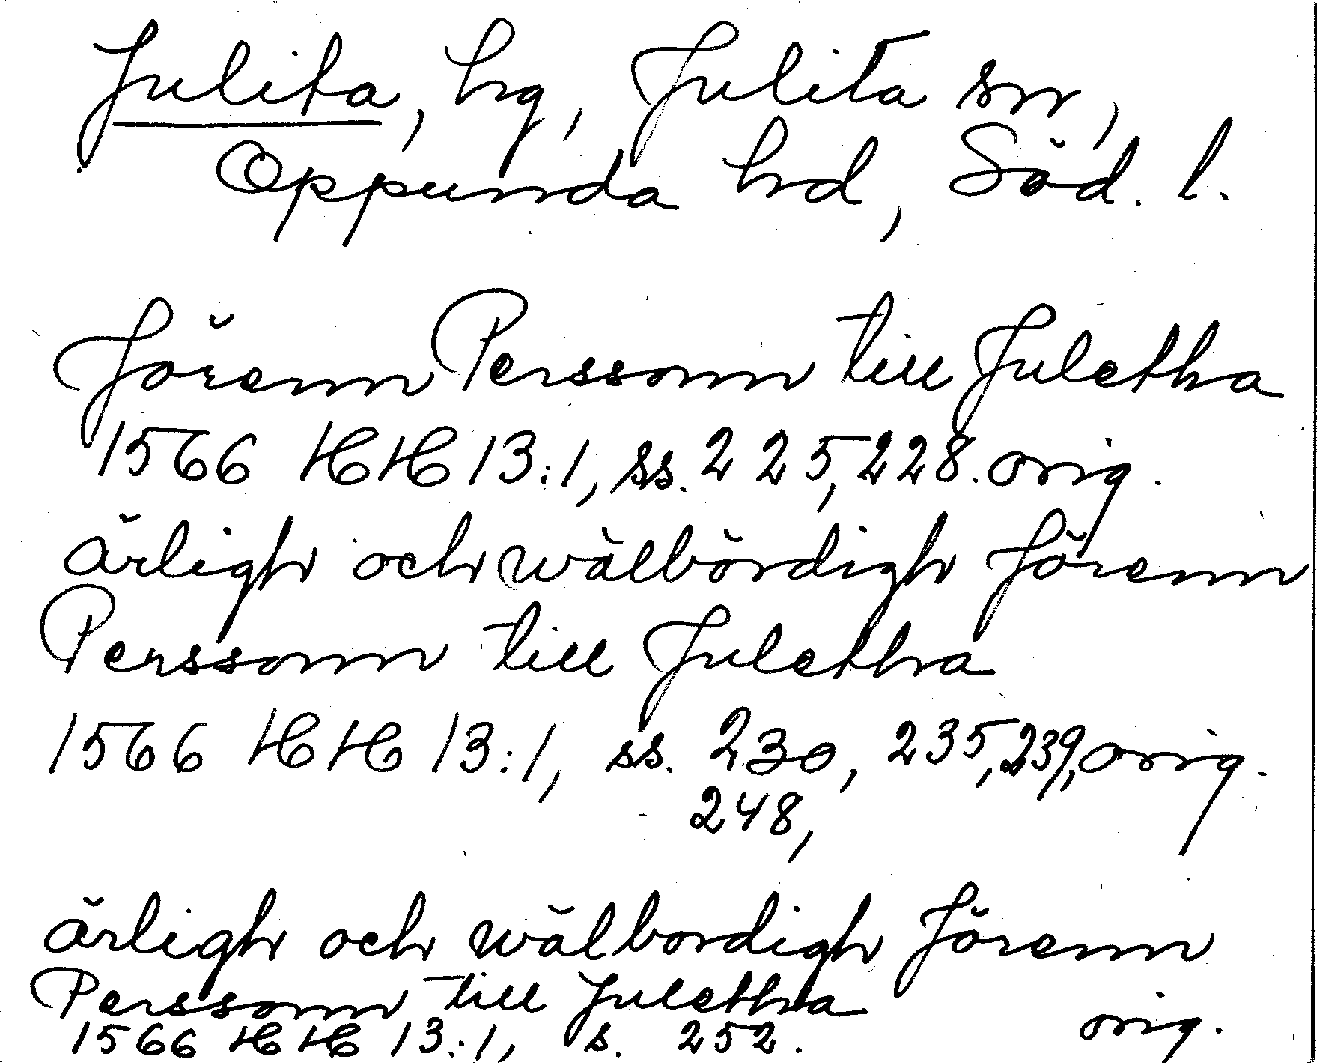 Julita, hg, Julita sn,
Oppunda hd, Söd. l.
Jörenn Perssonn till Juletha
1566 HH 13:1, ss. 225, 228. orig.
ärligh och wälbördigh Jörenn
Perssonn till Juletha
1566 HH 13:1, ss. 230, 235, 239, orig.
248,
ärligh och wälbordigh Jörenn
Perssonn till Juletha
1566 HH 13:1, s. 252. orig.